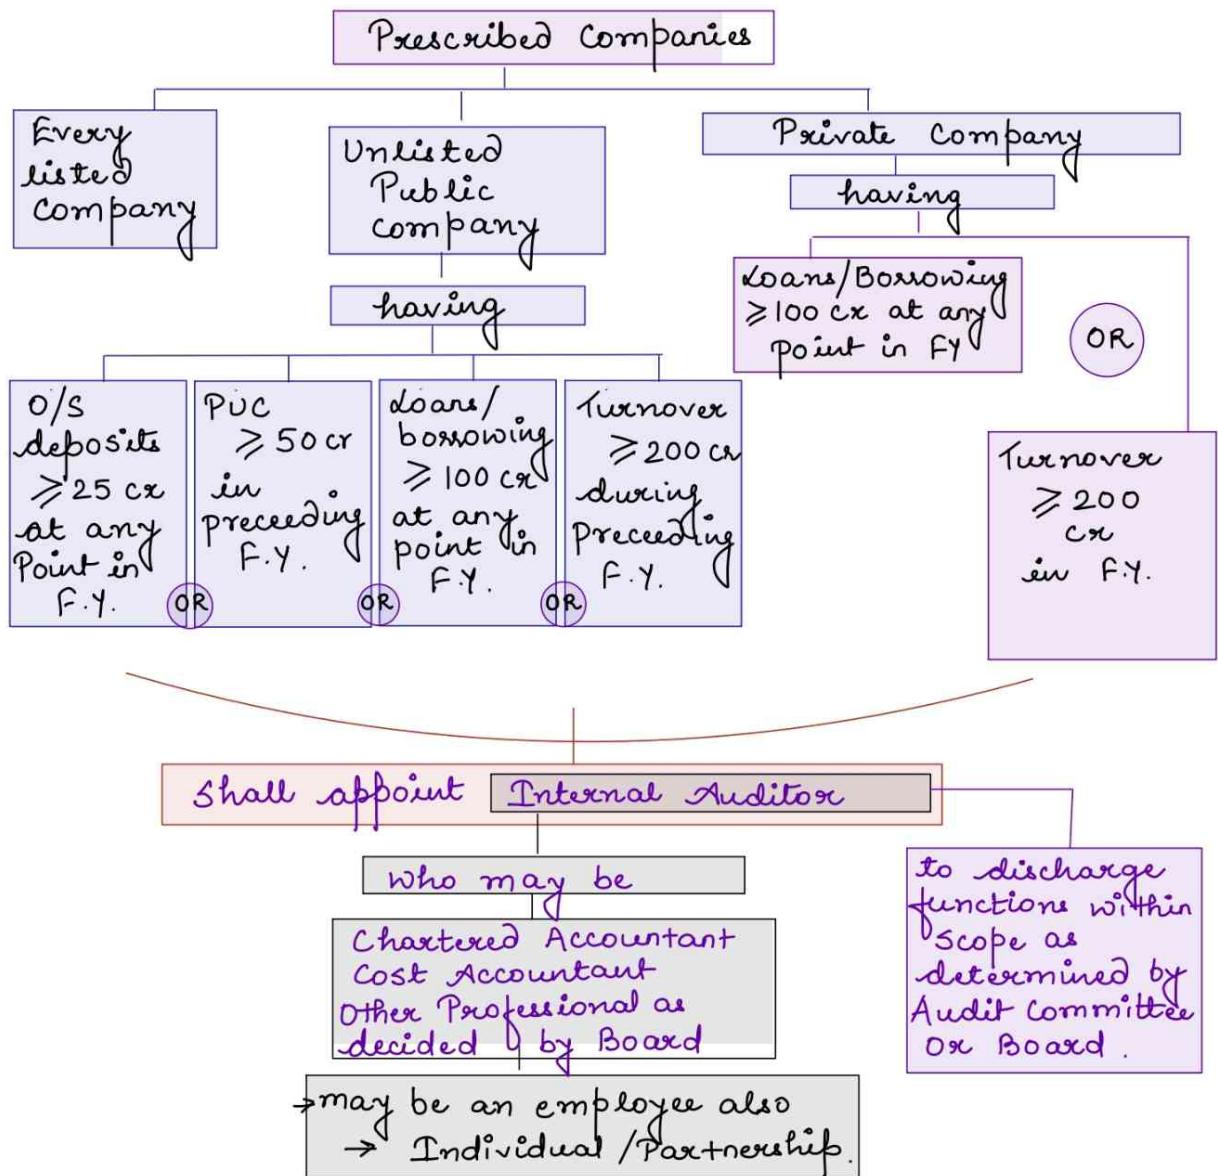 Prescribed Companies
Every
listed
company
Unlisted
Public
company
having
O/S
deposits
⩾ 25 cr
at any
Point in
F.Y.
OR
PUC
⩾ 50 cr
in
preceeding
F.Y.
OR
Loans/
borrowing
⩾ 100 cr
at any
point in
F.Y.
OR
Turnover
⩾ 200 cr
during
preceeding
F.Y.
Private Company
having
Loans/Borrowing
⩾ 100 cr at any
point in FY
OR
Turnover
⩾ 200
cr
in F.Y.
Shall appoint Internal Auditor
who may be
Chartered Accountant
Cost Accountant
Other Professional as
decided by Board
→ may be an employee also
→ Individual / Partnership.
to discharge
functions within
scope as
determined by
Audit Committee
Or Board.